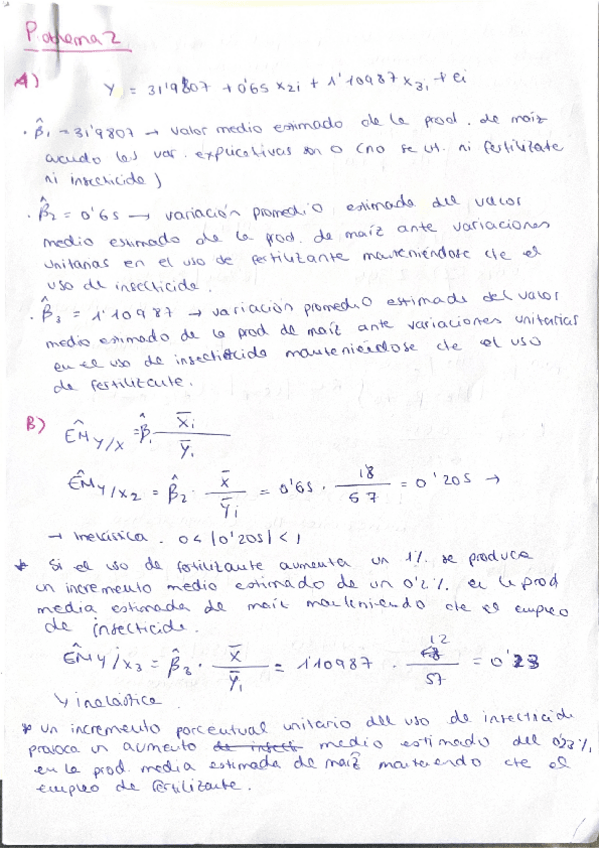 Problema 2
A) Yi = 31'9807 + 0'65 x2i + 1'10987 x3i + ei
· β̂1 = 31'9807 → valor medio estimado de la prod. de maíz
cuando las var. explicativas son 0 (no se ut. ni fertilizante
ni insecticida)
· β̂2 = 0'65 → variación promedio estimada del valor
medio estimado de la prod. de maíz ante variaciones
unitarias en el uso de fertilizante manteniéndose cte el
uso de insecticida.
· β̂3 = 1'10987 → variación promedio estimada del valor
medio estimado de la prod de maíz ante variaciones unitarias
en el uso de insecticida manteniéndose cte el uso
de fertilizante.
B) ÊM y/x = β̂i X̄i / Ȳi
ÊM y/x2 = β̂2 · X̄ / Ȳi = 0'65 · 18 / 57 = 0'205 →
→ Inelástica. 0 < |0'205| < 1
* Si el uso de fertilizante aumenta un 1% se produce
un incremento medio estimado de un 0'2% en la prod
media estimada de maíz manteniendo cte el empleo
de insecticida.
ÊM y/x3 = β̂3 · X̄ / Ȳi = 1'10987 · 12 / 57 = 0'23
↳ inelástica.
* Un incremento porcentual unitario del uso de insecticida
provoca un aumento de insecti medio estimado del 0'23%
en la prod. media estimada de maíz manteniendo cte el
empleo de fertilizante.